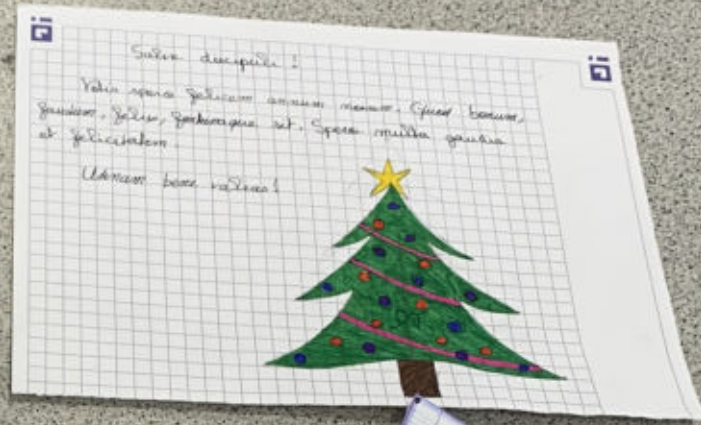 Salve discipuli !
Vobis spero felicem annum novum. Quod bonum,
faustum, felix, fortunaque sit. Spero multa gaudia
et felicitatem.
Utinam bene valeas !